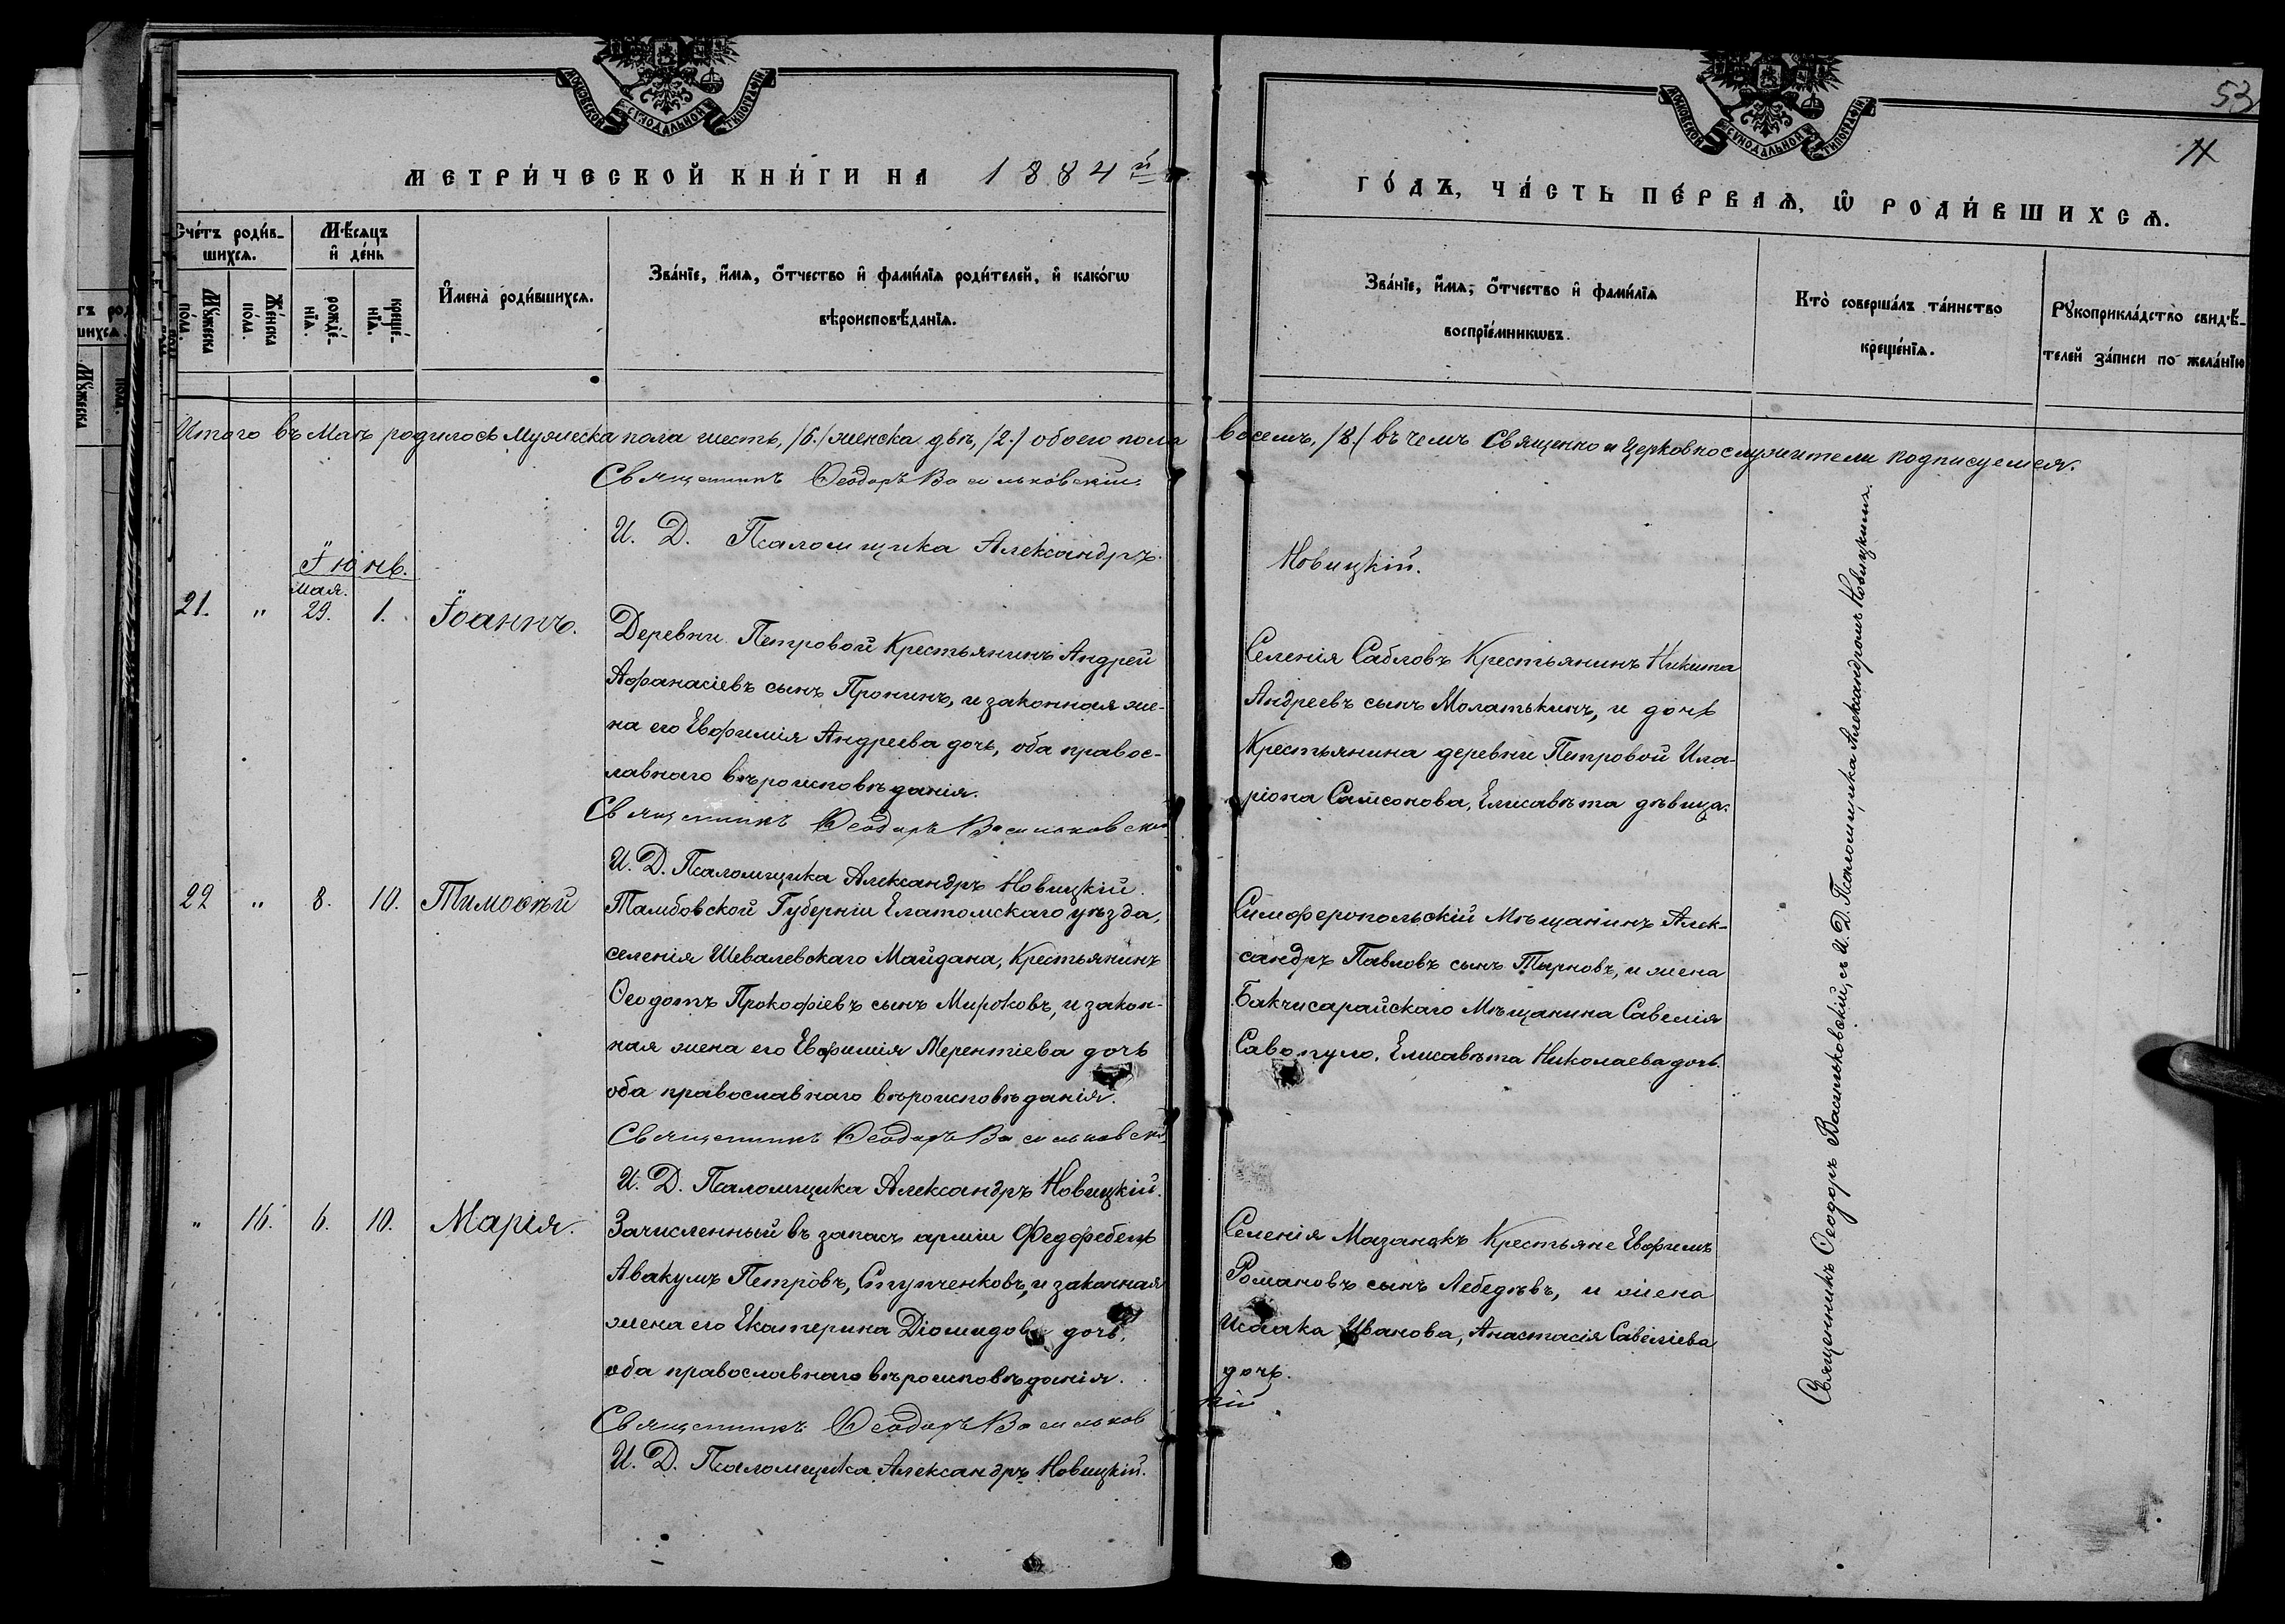 МОСКОВСКОЙ СѴНОДАЛЬНОЙ ТИПОГРАФІИ
МОСКОВСКОЙ СѴНОДАЛЬНОЙ ТИПОГРАФІИ
53
11
МЕТРИ́ЧЕСКОЙ КНИ́ГИ НА 1884й
ГО́ДЪ, ЧА́СТЬ ПЕ́РВАѦ, Ѡ҆ РОДИ́ВШИХСѦ.
Счє́тъ роди́в-
шихсѧ.
Мꙋ́жєска
по́ла.
Жє́нска
по́ла.
Мѣ́сѧцъ
и҆ дє́нь
рождє́-
нїѧ.
крєщє́-
нїѧ.
И҆мєна̀ роди́вшихсѧ.
Зва́нїє, и҆́мѧ, ѻ҆́тчєство и҆ фами́лїѧ роди́тєлєй, и҆ како́гѡ
вѣроисповѣ́данїѧ.
Зва́нїє, и҆́мѧ, ѻ҆́тчєство и҆ фами́лїѧ
воспрїє́мникѡвъ.
Кто̀ совєрша́лъ та́инство
крєщє́нїѧ.
Рꙋкоприкла́дство свидѣ́-
тєлєй за́писи по жєла́нїю
Итого въ Маѣ родилось мужеска пола шесть, /6./ женска двѣ, /2./ обоего пола восемь, /8./ въ чемъ Священно и Церковнослужители подписуемся.
Священникъ Ѳеодоръ Васильковскій.
И. Д. Псаломщика Александръ Новицкій.
Іюнь.
мая.
21. " 29. 1. Іоаннъ.
Деревни Петровой Крестьянинъ Андрей
Афанасіевъ сынъ Пронинъ, и законная же-
на его Евфимія Андреева дочь, оба правос-
лавнаго вѣроисповѣданія.
Священникъ Ѳеодоръ Васильковскій
И. Д. Псаломщика Александръ Новицкій.
Селенія Сабловъ Крестьянинъ Никита
Андреевъ сынъ Молатькинъ, и дочь
Крестьянина деревни Петровой Ила-
ріона Самсонова, Елисавѣта дѣвица.
22 " 8. 10. Тимоѳѣй
Тамбовской Губерніи Елатомскаго уѣзда,
селенія Шевалевскаго Майдана, Крестьянинъ
Ѳеодотъ Прокофіевъ сынъ Мироковъ, и закон-
ная жена его Евфимія Мерентіева дочь
оба православнаго вѣроисповѣданія.
Священникъ Ѳеодоръ Васильковскій
И. Д. Псаломщика Александръ Новицкій.
Симферопольскій Мѣщанинъ Алек-
сандръ Павловъ сынъ Тырновъ, и жена
Бакчисарайскаго Мѣщанина Савелія
Савопуло, Елисавѣта Николаева дочь.
" 16. 6. 10. Марія.
Зачисленный въ запасъ арміи Федофебель
Авакумъ Петровъ, Ступченковъ, и законная
жена его Екатерина Діомидова дочь,
оба православнаго вѣроисповѣданія.
Священникъ Ѳеодоръ Васильковскій
И. Д. Псаломщика Александръ Новицкій.
Селенія Мазанокъ Крестьяне Евфимъ
Романовъ сынъ Лебедѣвъ, и жена
Исаака Иванова, Анастасія Савеліева
дочь.
Священникъ Ѳеодоръ Васильковскій, съ И. Д. Псаломщика Александромъ Новицкимъ.